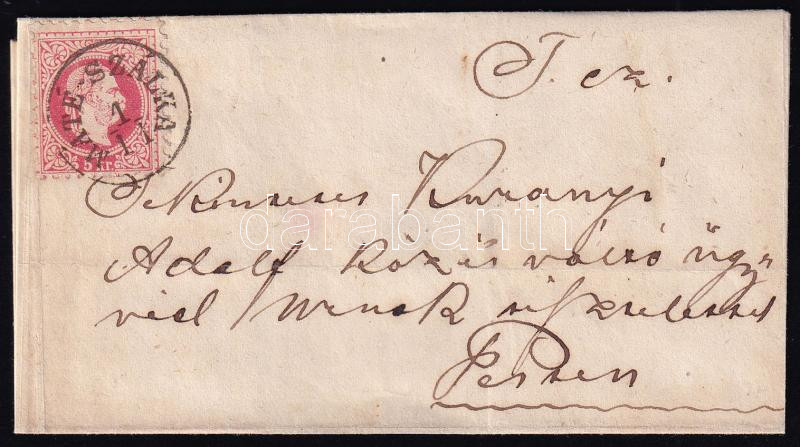 MÁTÉ-SZALKA
1
11
5 kr.
T. cz.
Tekintetes Kuranyi
Adolf köz és váltó ügy=
véd urnak tisztelettel
Pesten
darabanth